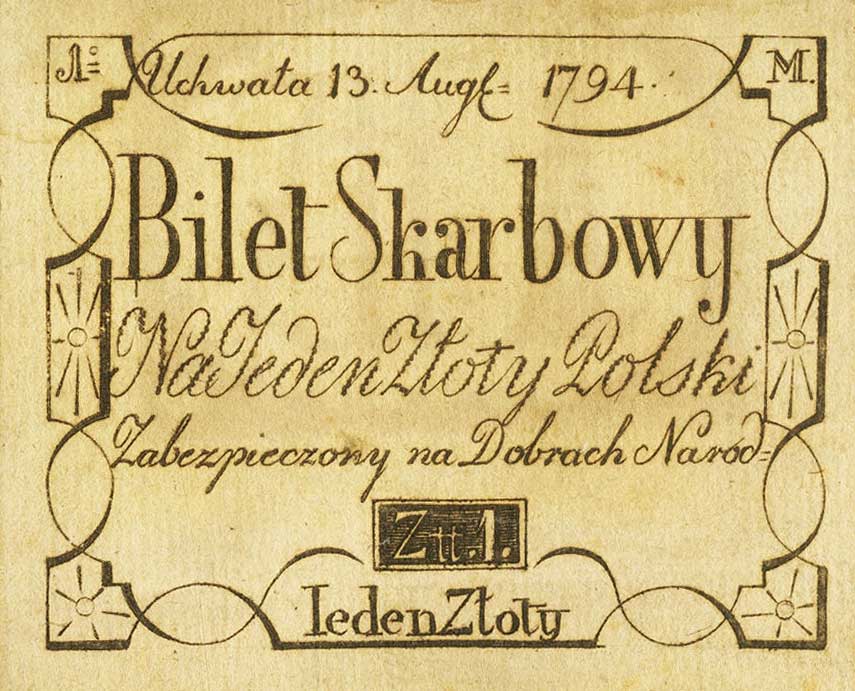 No= Uchwała 13. Augt= 1794. M.
Bilet Skarbowy
Na Jeden Złoty Polski
Zabezpieczony na Dobrach Narod=
Złł. 1.
Ieden Złoty